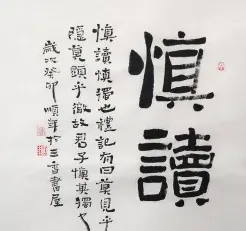 慎讀
慎讀慎獨也禮記有曰莫見乎
隱莫顯乎微故君子慎其獨也
歲次癸卯順年於三香書屋